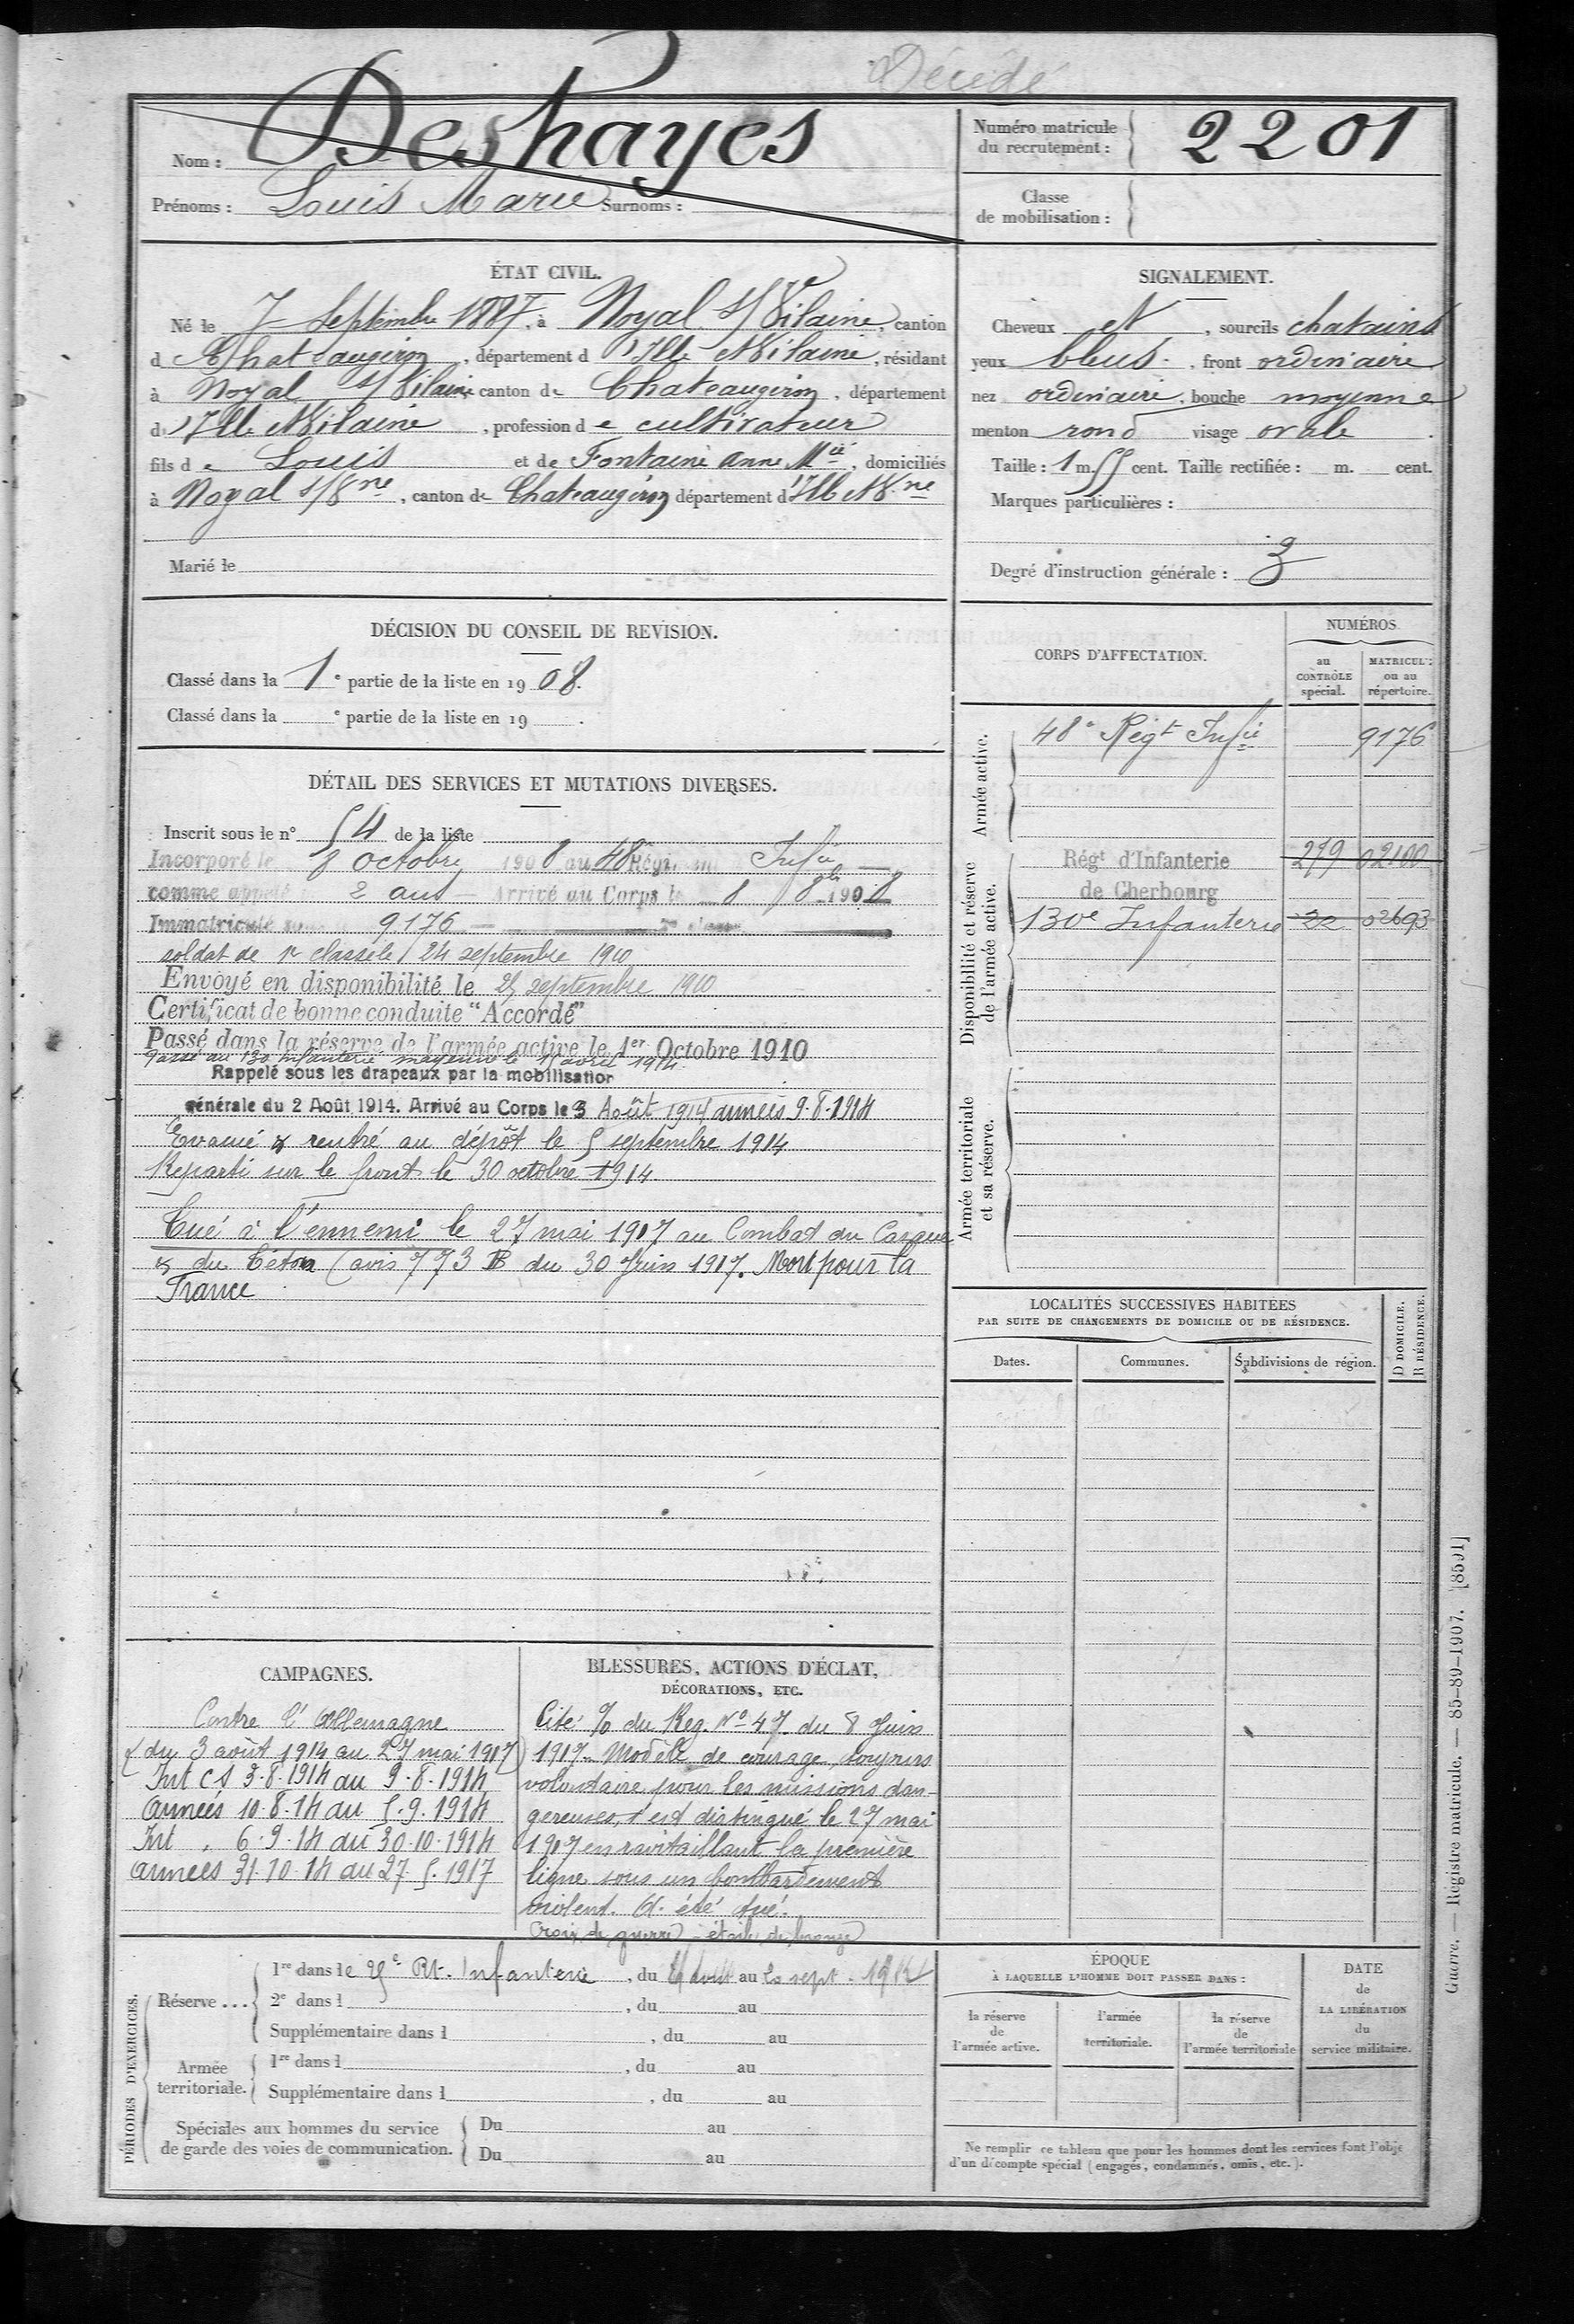 Décédé
Nom : Deshayes
Prénoms : Louis Marie Surnoms :
Numéro matricule du recrutement : 2201
Classe de mobilisation :
ÉTAT CIVIL.
Né le 7 Septembre 1887, à Noyal s/Vilaine, canton
de Chateaugiron, département d'Ille et Vilaine, résidant
à Noyal s/Vilaine canton de Chateaugiron, département
d'Ille et Vilaine, profession de cultivateur
fils de Louis et de Fontaine Anne Mie, domiciliés
à Noyal s/Vne, canton de Chateaugiron département d'Ille et Vne
Marié le
SIGNALEMENT.
Cheveux et, sourcils chatains
yeux bleus, front ordinaire
nez ordinaire, bouche moyenne
menton rond visage ovale.
Taille : 1 m. 55 cent. Taille rectifiée : m. cent.
Marques particulières :
Degré d'instruction générale : 3
DÉCISION DU CONSEIL DE REVISION.
Classé dans la 1e partie de la liste en 1908.
Classé dans la e partie de la liste en 19 .
DÉTAIL DES SERVICES ET MUTATIONS DIVERSES.
Inscrit sous le n° 54 de la liste
Incorporé le 8 octobre 1908 au 48 Régiment Infie
comme appelé 2 ans Arrivé au Corps le 8 8bre 1908
Immatriculé sous 9176
soldat de 1re classe le 24 septembre 1910
Envoyé en disponibilité le 25 septembre 1910
Certificat de bonne conduite "Accordé"
Passé dans la réserve de l'armée active le 1er Octobre 1910
Passé au 130 Infanterie mayenne le 15 avril 1914
Rappelé sous les drapeaux par la mobilisation
générale du 2 Août 1914. Arrivé au Corps le 3 Août 1914 armées 9.8.1914
Evacué & rentré au dépôt le 5 septembre 1914
Reparti sur le front le 30 octobre 1914
Tué à l'ennemi le 27 mai 1917 au Combat du Casque
& du Téton (avis 773 B du 30 Juin 1917. Mort pour la
France
CORPS D'AFFECTATION.
NUMÉROS
au CONTRÔLE spécial.
MATRICULE ou au répertoire.
Armée active.
48e Régt Infie 9176
Disponibilité et réserve de l'armée active.
Régt d'Infanterie 279 02100
de Cherbourg
130e Infanterie 22 02693
Armée territoriale et sa réserve.
LOCALITÉS SUCCESSIVES HABITÉES
PAR SUITE DE CHANGEMENTS DE DOMICILE OU DE RÉSIDENCE.
Dates. Communes. Subdivisions de région.
D DOMICILE. R RÉSIDENCE.
CAMPAGNES.
Contre l'Allemagne
(du 3 août 1914 au 27 mai 1917)
Int CS 3.8.1914 au 9.8.1914
Armées 10.8.14 au 5.9.1914
Int " 6.9.14 au 30.10.1914
armees 31.10.14 au 27.5.1917
BLESSURES, ACTIONS D'ÉCLAT,
DÉCORATIONS, ETC.
Cité % du Reg. N° 47 du 8 Juin
1917. Modèle de courage, toujours
volontaire pour les missions dan-
gereuses, s'est distingué le 27 mai
1917 en ravitaillant la première
ligne sous un bombardement
violent. A été tué.
Croix de guerre étoile de bronze
PÉRIODES D'EXERCICES.
Réserve ...
1re dans le 25e Rt. Infanterie, du août au sept. 1912
2e dans l , du au
Supplémentaire dans l , du au
Armée territoriale.
1re dans l , du au
Supplémentaire dans l , du au
Spéciales aux hommes du service de garde des voies de communication.
Du au
Du au
ÉPOQUE
À LAQUELLE L'HOMME DOIT PASSER DANS :
la réserve de l'armée active.
l'armée territoriale.
la réserve de l'armée territoriale
DATE de LA LIBÉRATION du service militaire.
Ne remplir ce tableau que pour les hommes dont les services font l'obje
d'un décompte spécial (engagés, condamnés, omis, etc.).
Guerre. — Registre matricule. — 85-89-1907. [8591]